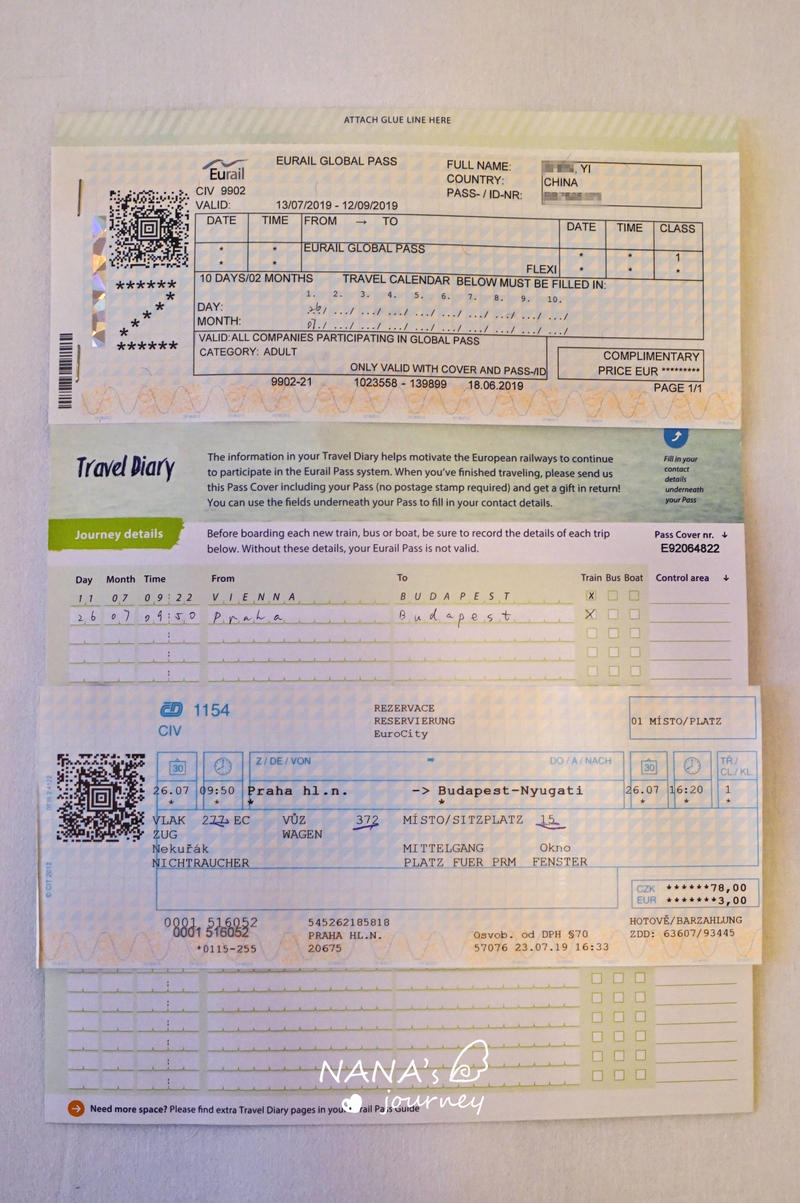 ATTACH GLUE LINE HERE
Eurail
EURAIL GLOBAL PASS
FULL NAME: , YI
COUNTRY: CHINA
PASS- / ID-NR:
CIV 9902
VALID: 13/07/2019 - 12/09/2019
DATE TIME FROM → TO DATE TIME CLASS
* * EURAIL GLOBAL PASS * * 1
* * FLEXI * * *
10 DAYS/02 MONTHS TRAVEL CALENDAR BELOW MUST BE FILLED IN:
1. 2. 3. 4. 5. 6. 7. 8. 9. 10.
DAY: 26/ .../ .../ .../ .../ .../ .../ .../ .../ .../
MONTH: 07./ .../ .../ .../ .../ .../ .../ .../ .../ .../
******
*
*
*
*
******
VALID:ALL COMPANIES PARTICIPATING IN GLOBAL PASS
CATEGORY: ADULT
ONLY VALID WITH COVER AND PASS-/ID
COMPLIMENTARY
PRICE EUR *********
9902-21 1023558 - 139899 18.06.2019 PAGE 1/1
Travel Diary
The information in your Travel Diary helps motivate the European railways to continue
to participate in the Eurail Pass system. When you've finished traveling, please send us
this Pass Cover including your Pass (no postage stamp required) and get a gift in return!
You can use the fields underneath your Pass to fill in your contact details.
Fill in your
contact
details
underneath
your Pass
Journey details
Before boarding each new train, bus or boat, be sure to record the details of each trip
below. Without these details, your Eurail Pass is not valid.
Pass Cover nr. ↓
E92064822
Day Month Time From To Train Bus Boat Control area ↓
11 07 09:22 VIENNA BUDAPEST X
26 07 09:50 Praha Budapest X
ČD 1154
CIV
REZERVACE
RESERVIERUNG
EuroCity
01 MÍSTO/PLATZ
30 Z / DE / VON DO / A / NACH 30 TŘ./
CL./KL.
26.07 09:50 Praha hl.n. -> Budapest-Nyugati 26.07 16:20 1
* * * * * * *
VLAK 277 EC VŮZ 372 MÍSTO/SITZPLATZ 15
ZUG WAGEN
Nekuřák MITTELGANG Okno
NICHTRAUCHER PLATZ FUER PRM FENSTER
CZK ******78,00
EUR *******3,00
0001 516052
0001 516052
*0115-255
545262185818
PRAHA HL.N.
20675
Osvob. od DPH §70
57076 23.07.19 16:33
HOTOVĚ/BARZAHLUNG
ZDD: 63607/93445
NANA's
journey
Need more space? Please find extra Travel Diary pages in your Eurail Pass Guide